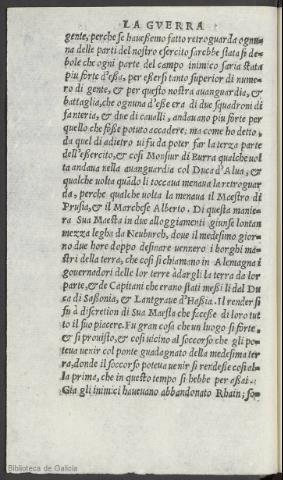 LA GVERRA
gente, perche se hauessemo fatto retroguarda ognu=
na delle parti del nostro esercito sarebbe stata si de=
bole che ogni parte del campo inimico saria stata
piu forte d'essa, per essersi tanto superior di nume=
ro di gente, & per questo nostra auanguardia, &
battaglia, che ognuna d'esse era di due squadroni di
fanteria, & due di caualli, andauano piu forte per
quello che fosse potuto accadere, ma come ho detto,
da quel di adietro ui fu da poter far la terza parte
dell'essercito, & cosi Monsiur di Burra qualche uol
ta andaua nella auanguardia col Duca d'Alua, &
qualche uolta quādo li toccaua menaua la retroguar
da, perche qualche uolta la menaua il Maestro di
Prusia, & il Marchese Alberto. Di questa manie=
ra Sua Maesta in due alloggiamenti giunse lontan
mezza legha da Neuburch, doue il medesimo gior=
no due hore doppo desinare uennero i borghi ma=
stri della terra, che cosi si chiamano in Alemagna i
gouernadori delle lor terre à dargli la terra da lor
parte, & de Capitani che erano stati messi li dal Du
ca di Sassonia, & Lantgraue d'Hassia. Il render si
fu à discretion di Sua Maesta che facesse di loro tut
to il suo piacere. Fu gran cosa che un luogo si forte,
& si prouisto, & cosi uicino al soccorso che gli po=
teua uenir col ponte guadagnato della medesima ter
ra, donde il soccorso poteua uenir si rendesse cosi al=
la prima, che in questo tempo si hebbe per assai.
Gia gli inimici haueuano abbandonato Rhain; so=
Biblioteca de Galicia